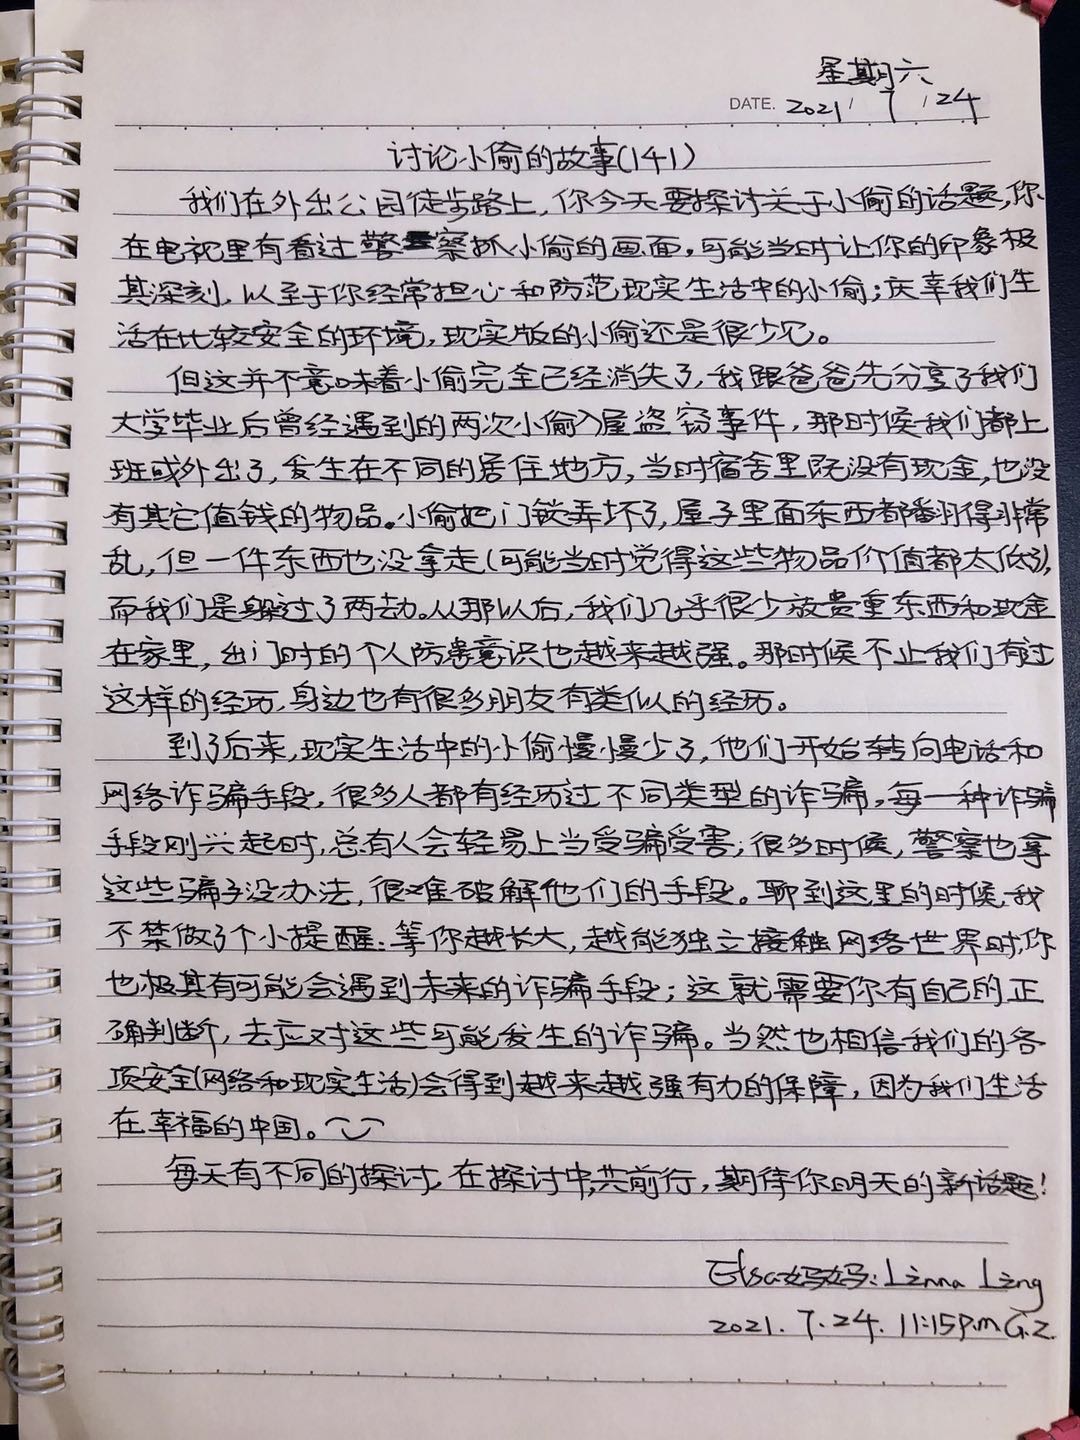 星期六
DATE. 2021 / 7 / 24
讨论小偷的故事(141)
我们在外出公园徒步路上,你今天要探讨关于小偷的话题,你
在电视里有看过警察抓小偷的画面,可能当时让你的印象极
其深刻,以至于你经常担心和防范现实生活中的小偷;庆幸我们生
活在比较安全的环境,现实版的小偷还是很少见。
但这并不意味着小偷完全已经消失了,我跟爸爸先分享了我们
大学毕业后曾经遇到的两次小偷入屋盗窃事件,那时候我们都上
班或外出了,发生在不同的居住地方,当时宿舍里既没有现金,也没
有其它值钱的物品。小偷把门锁弄坏了,屋子里面东西都翻得非常
乱,但一件东西也没拿走(可能当时觉得这些物品价值都太低了),
而我们是躲过了两劫。从那以后,我们几乎很少放贵重东西和现金
在家里,出门时的个人防患意识也越来越强。那时候不止我们有过
这样的经历,身边也有很多朋友有类似的经历。
到了后来,现实生活中的小偷慢慢少了,他们开始转向电话和
网络诈骗手段,很多人都有经历过不同类型的诈骗。每一种诈骗
手段刚兴起时,总有人会轻易上当受骗受害;很多时候,警察也拿
这些骗子没办法,很难破解他们的手段。聊到这里的时候,我
不禁做了个小提醒:等你越长大,越能独立接触网络世界时,你
也极其有可能会遇到未来的诈骗手段;这就需要你有自己的正
确判断,去应对这些可能发生的诈骗。当然也相信我们的各
项安全(网络和现实生活)会得到越来越强有力的保障,因为我们生活
在幸福的中国。
每天有不同的探讨,在探讨中共前行,期待你明天的新话题!
Elsa妈妈:Linna Ling
2021.7.24. 11:15p.m G.Z.